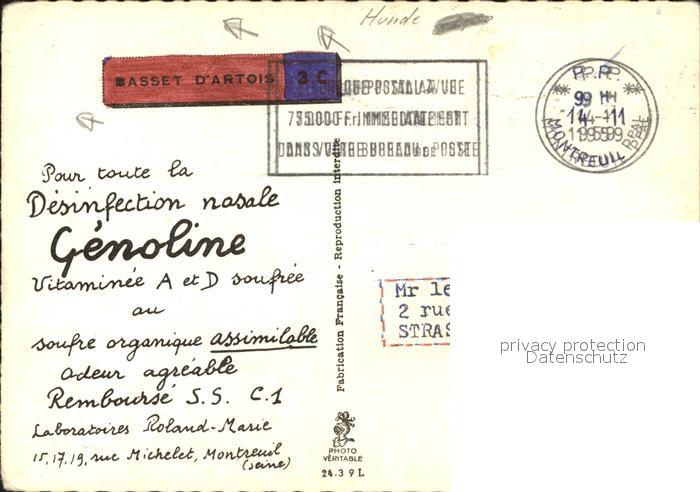 Hunde
BASSET D'ARTOIS 3 C
P.P.
99 H
14-11
1959
MONTREUIL
75.000 F. IMMEDIATEMENT
DANS VOTRE BUREAU DE POSTE
Pour toute la
Désinfection nasale
Génoline
Vitaminée A et D soufrée
au
soufre organique assimilable
odeur agréable
Remboursé S.S. C.1
Laboratoires Roland-Marie
15, 17, 19, rue Michelet, Montreuil
(Seine)
Fabrication Française - Reproduction interdite
PHOTO
VÉRITABLE
24.3 9 L
Mr le
2 rue
STRAS
privacy protection
Datenschutz